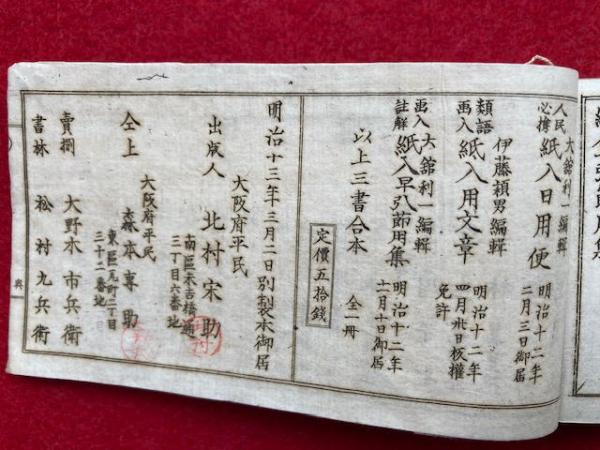 大舘利一編輯
人民必携 紙入日用便 明治十二年二月三日御届
伊藤頴男編輯
類語画入 紙入用文章 明治十二年四月卅日板權免許
大舘利一編輯
画入註解 紙入早引節用集 明治十二年十一月十日御届
以上三書合本 全一冊
定價五拾錢
明治十三年三月二日別製本御届
大阪府平民
出版人 北村宗助
南區末吉橋通三丁目六番地
大阪府平民
仝上 森本専助
東區瓦町二丁目三十二番地
賣捌 大野木市兵衛
書林 松村九兵衛